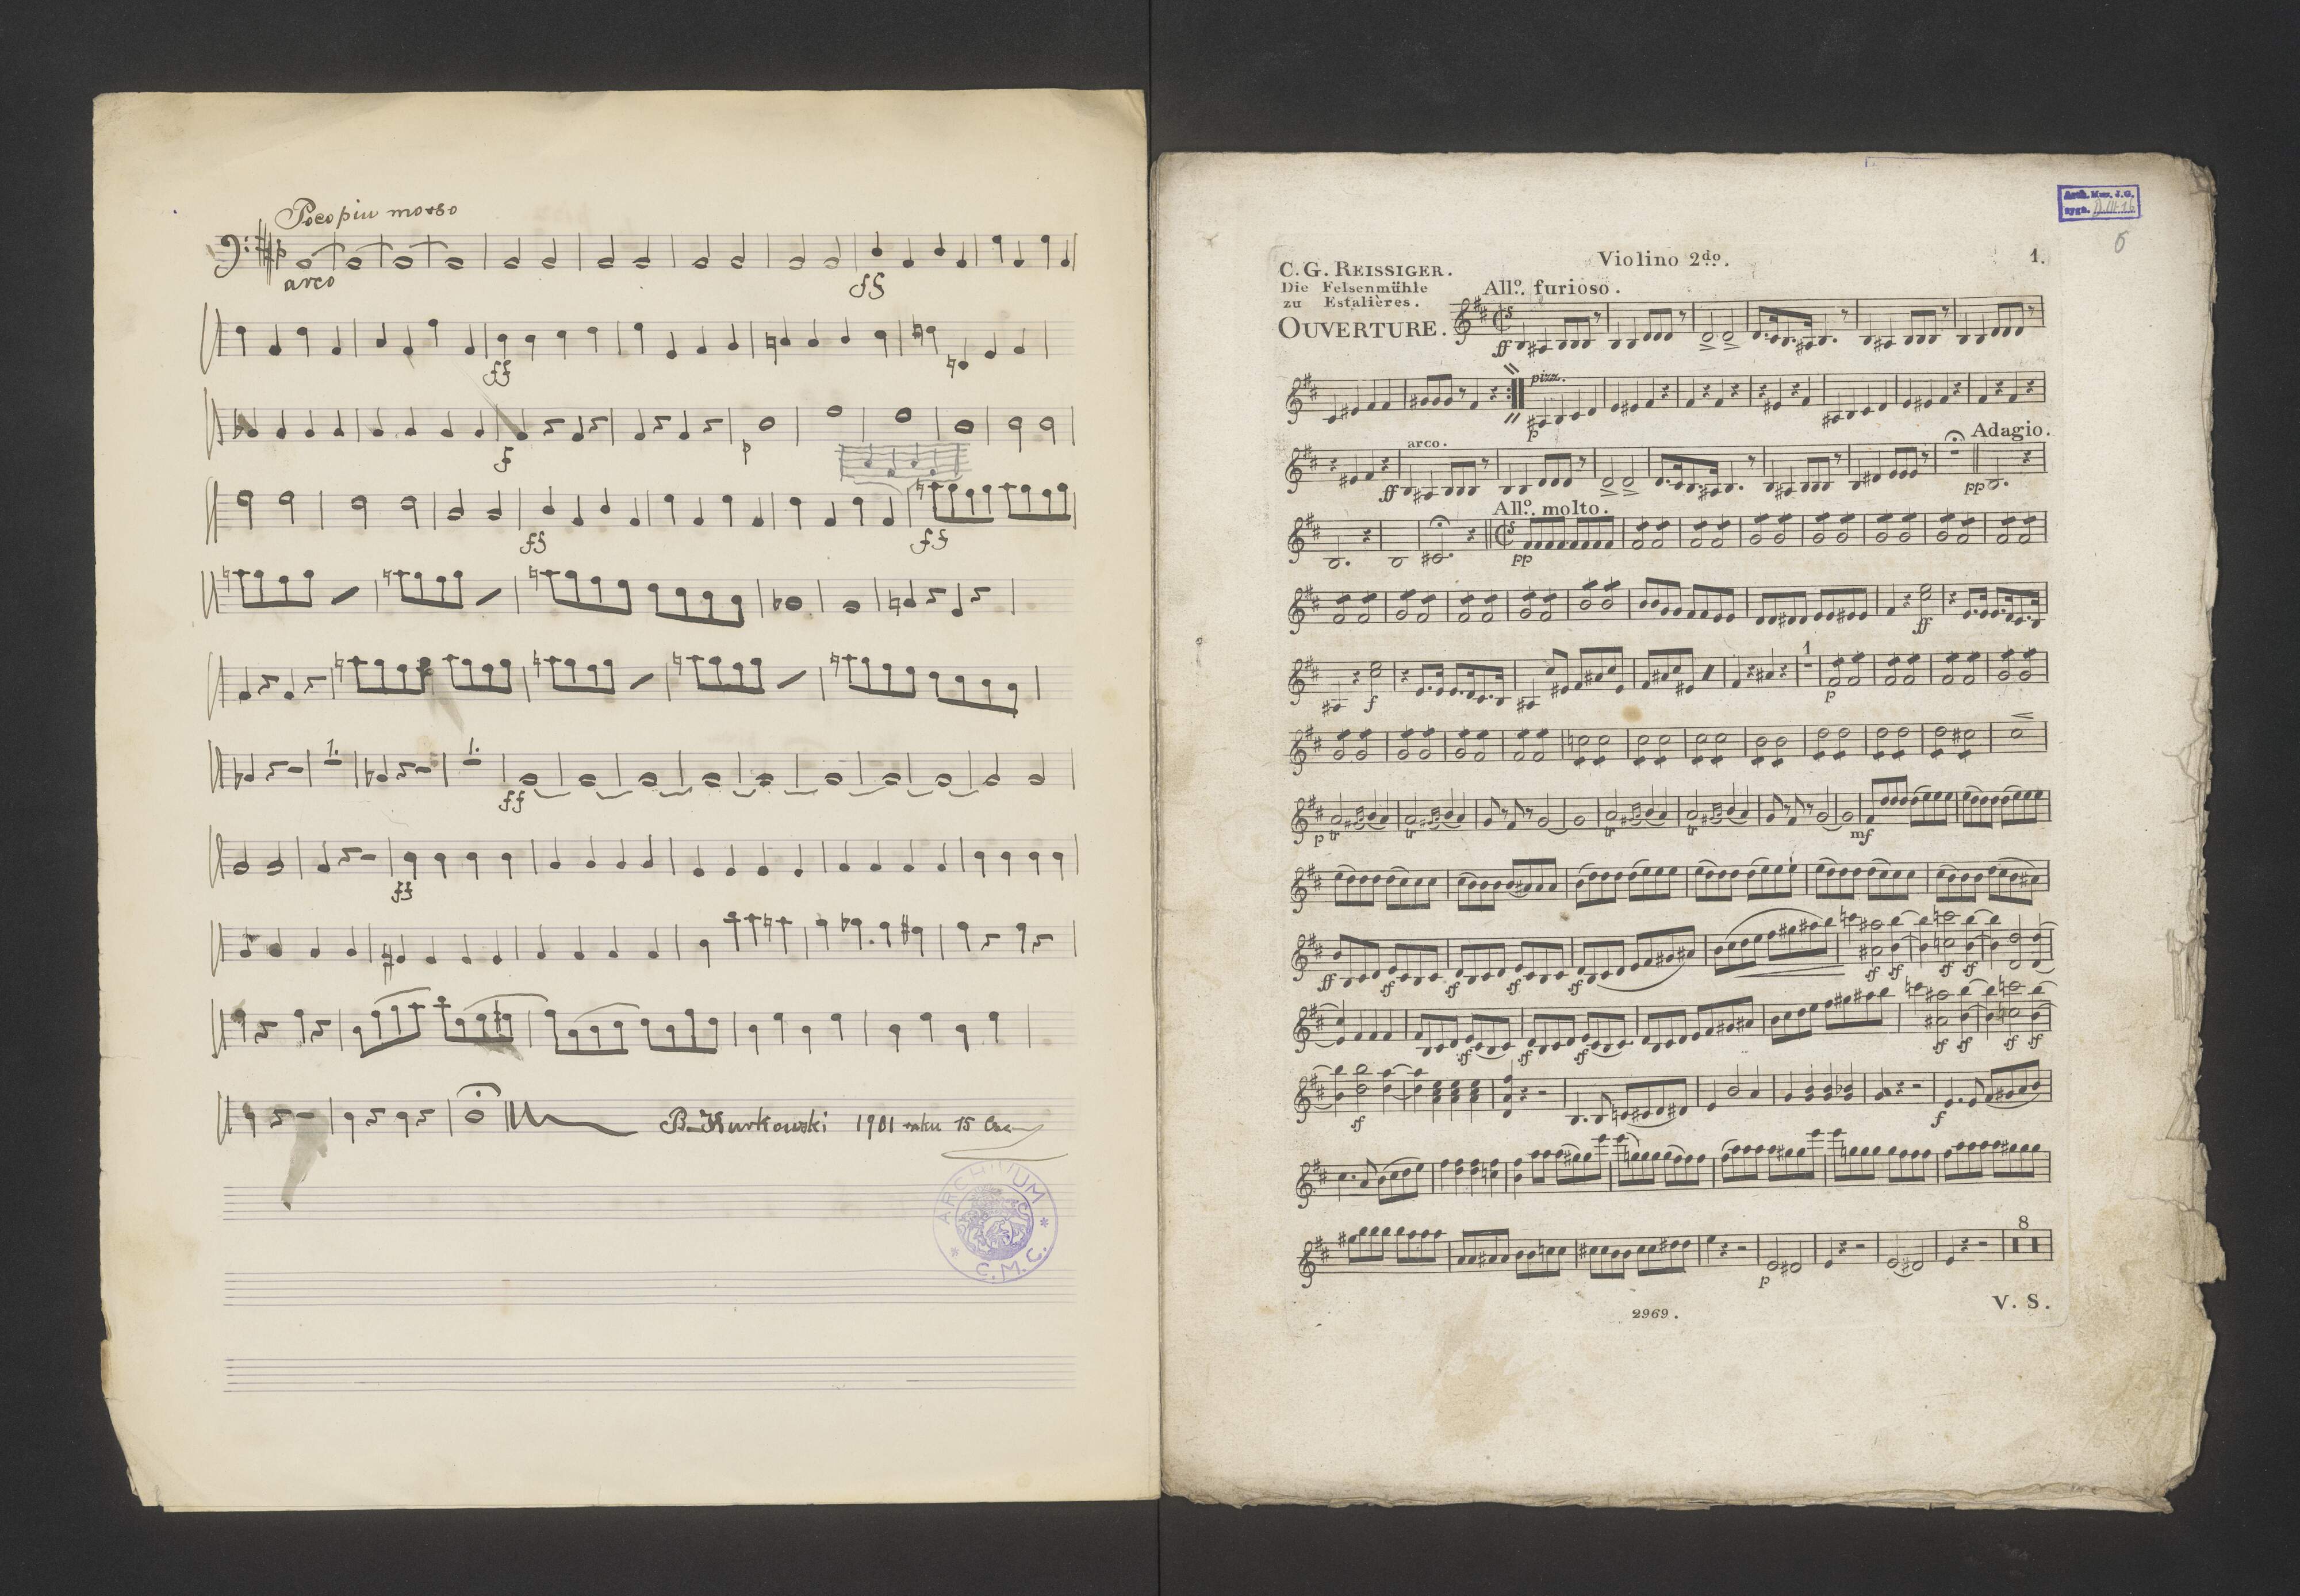 Poco piu mosso
arco
ff
ff
f
p
ff
ff
1.
1.
ff
ff
B. Kurkowski 1901 roku 15
ARCHIVUM
* C.M.C. *
Arch. Muz. J.G.
sygn.
6
Violino 2do.
1.
C. G. REISSIGER.
Die Felsenmühle
zu Estalières.
OUVERTURE.
Allo. furioso.
ff
pizz.
p
arco.
Adagio.
ff
pp
Allo. molto.
pp
ff
1
f
p
p tr tr tr tr mf
ff sf sf sf sf sf sf sf sf
sf sf sf sf sf sf sf
sf
f
8
p
2969.
V. S.